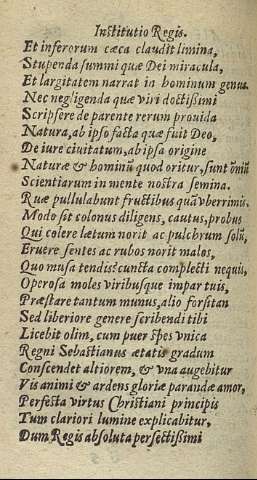 Institutio Regis.
Et inferorum cæca claudit limina,
Stupenda summi quæ Dei miracula,
Et largitatem narrat in hominum genus.
Nec negligenda quæ viri doctißimi
Scripsere de parente rerum provida
Natura, ab ipso facta quæ fuit Deo,
De iure civitatum, ab ipsa origine
Naturæ & hominũ quod oritur, sunt õniũ
Scientiarum in mente nostra semina.
Quæ pullulabunt fructibus quã vberrimis.
Modo sit colonus diligens, cautus, probus
Qui colere lætum norit ac pulchrum solũ,
Eruere sentes ac rubos norit malos,
Quo musa tendis? cuncta complecti nequis,
Operosa moles viribusque impar tuis,
Præstare tantum munus, alio forsitan
Sed liberiore genere scribendi tibi
Licebit olim, cum puer spes vnica
Regni Sebastianus ætatis gradum
Conscendet altiorem, & vna augebitur
Vis animi & ardens gloriæ parandæ amor,
Perfecta virtus Christiani principis
Tum clariori lumine explicabitur,
Dum Regis absoluta perfectißimi